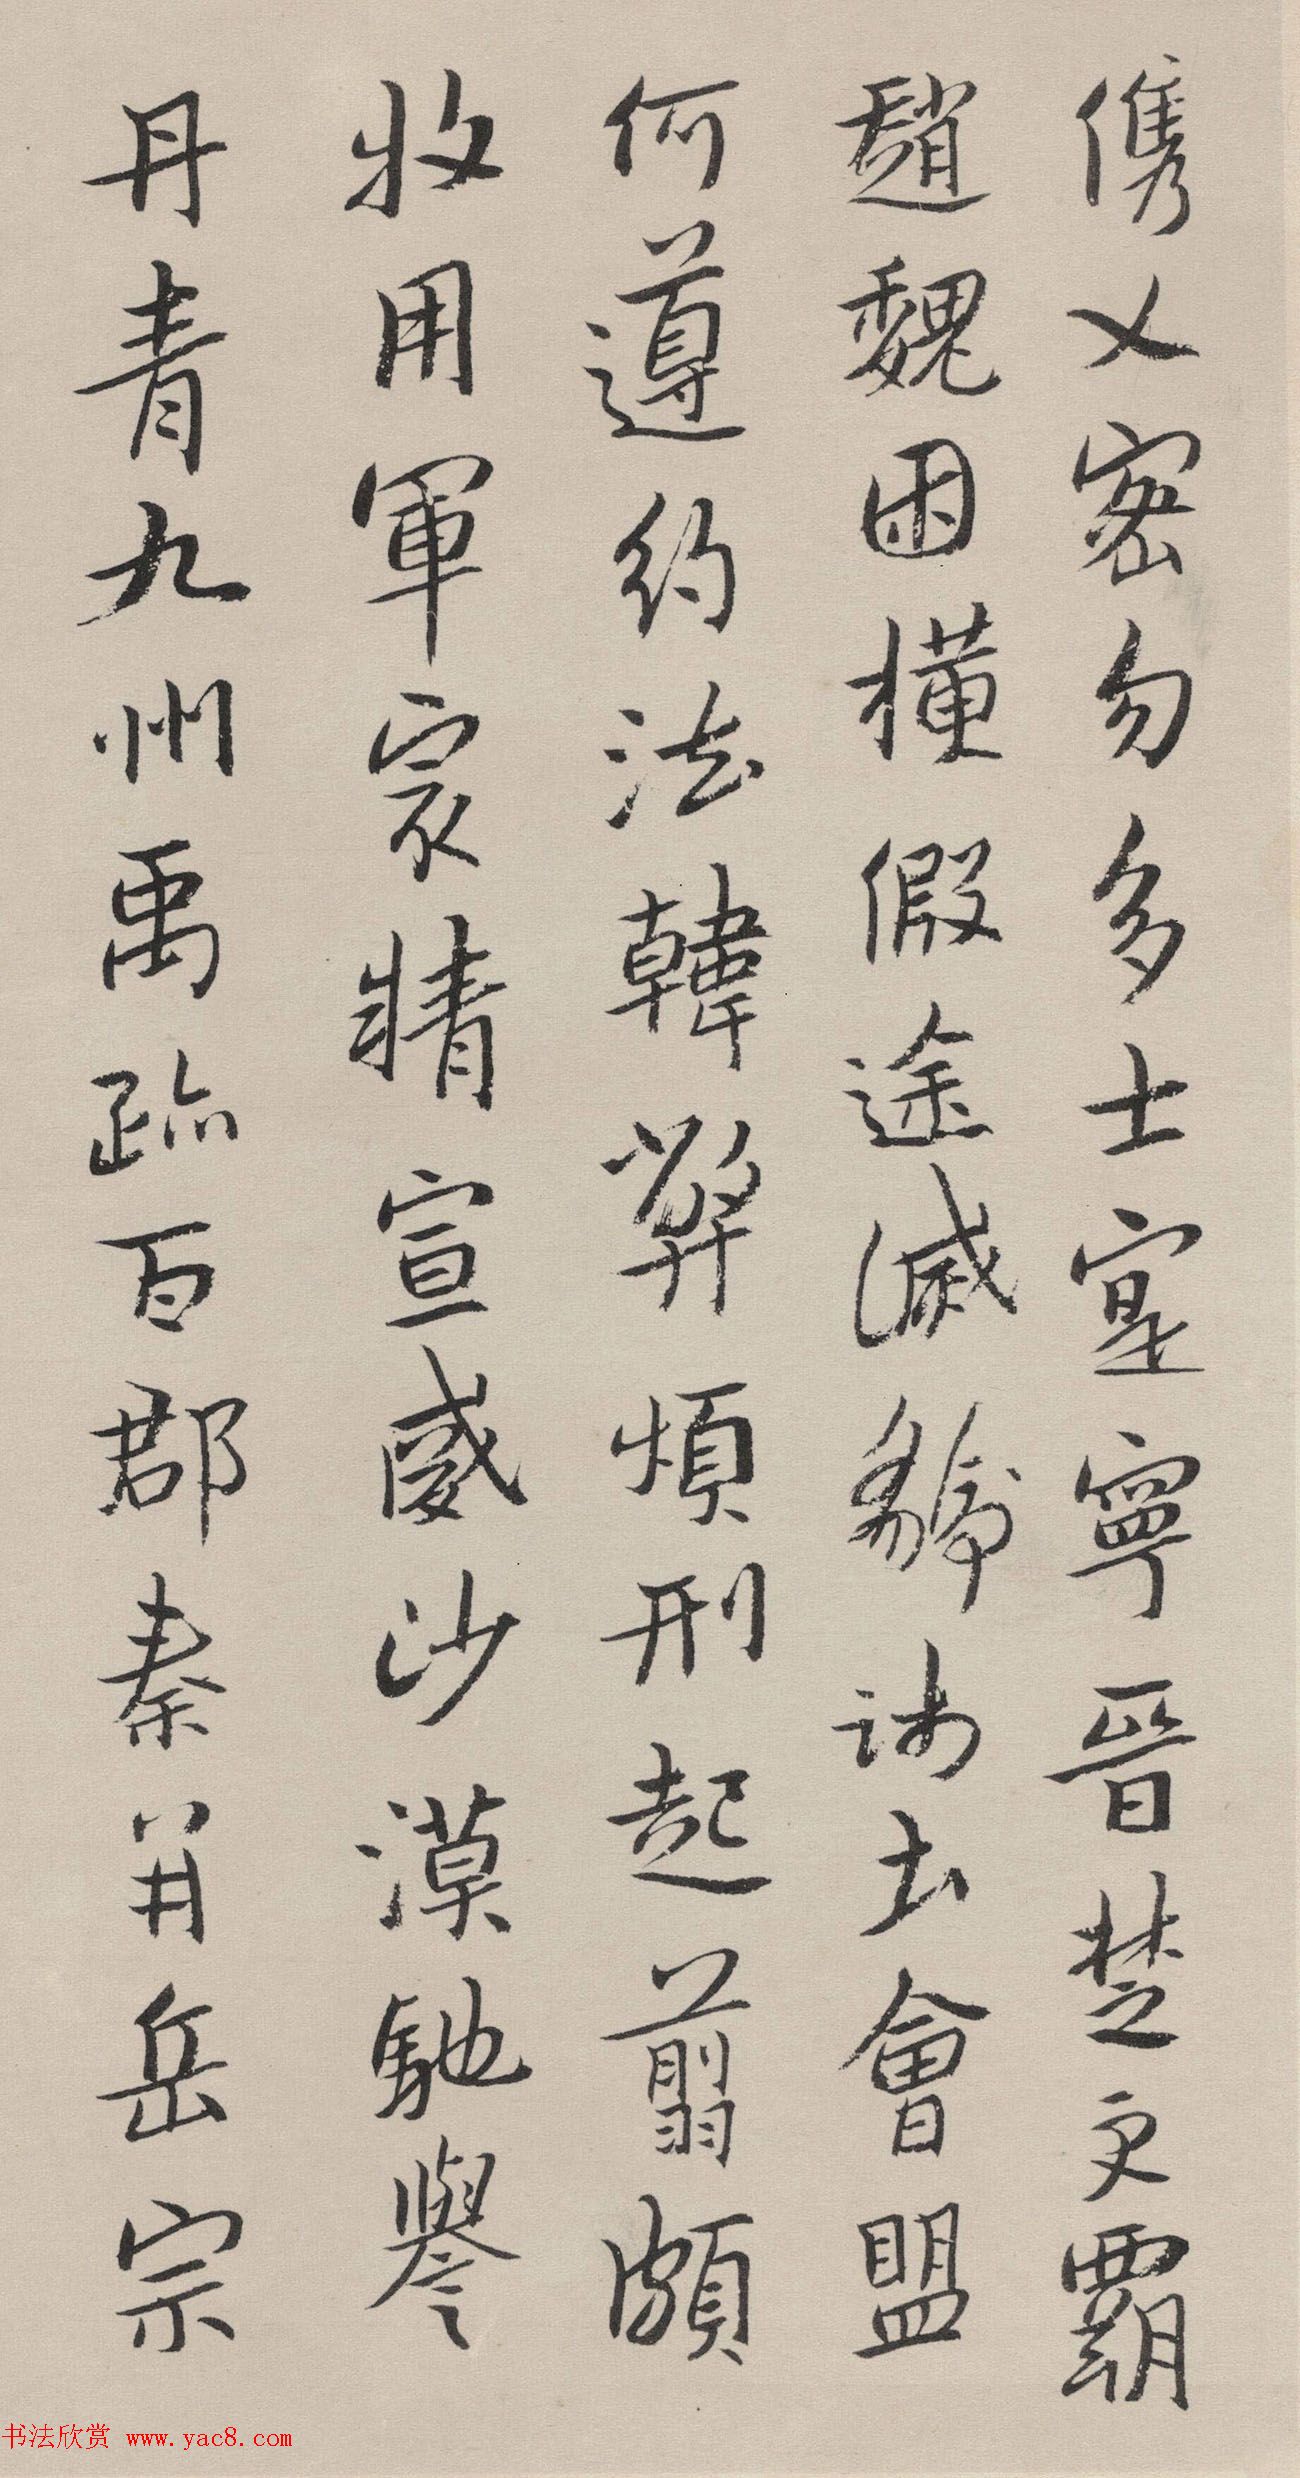 俊乂密勿多士寔寧晉楚更霸
趙魏困橫假途滅虢踐土會盟
何遵約法韓弊煩刑起翦頗
牧用軍宼精宣威沙漠馳譽
丹青九州禹跡百郡秦并岳宗
书法欣赏 www.yac8.com